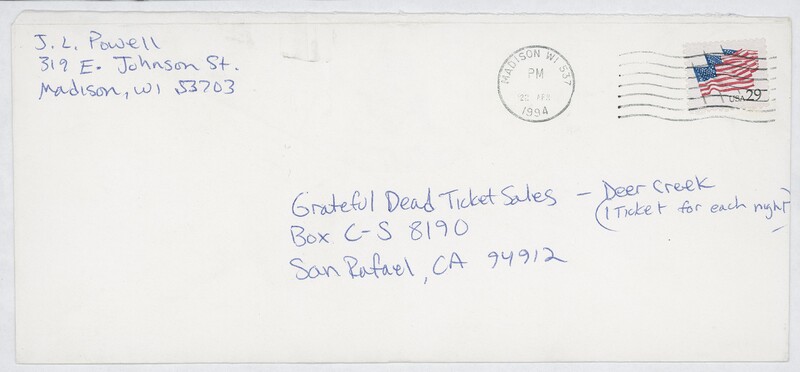 J. L. Powell
319 E. Johnson St.
Madison, WI 53703
MADISON WI 537
PM
22 APR
1994
USA 29
Grateful Dead Ticket Sales — Deer Creek
(1 Ticket for each night)
Box C-S 8190
San Rafael, CA 94912